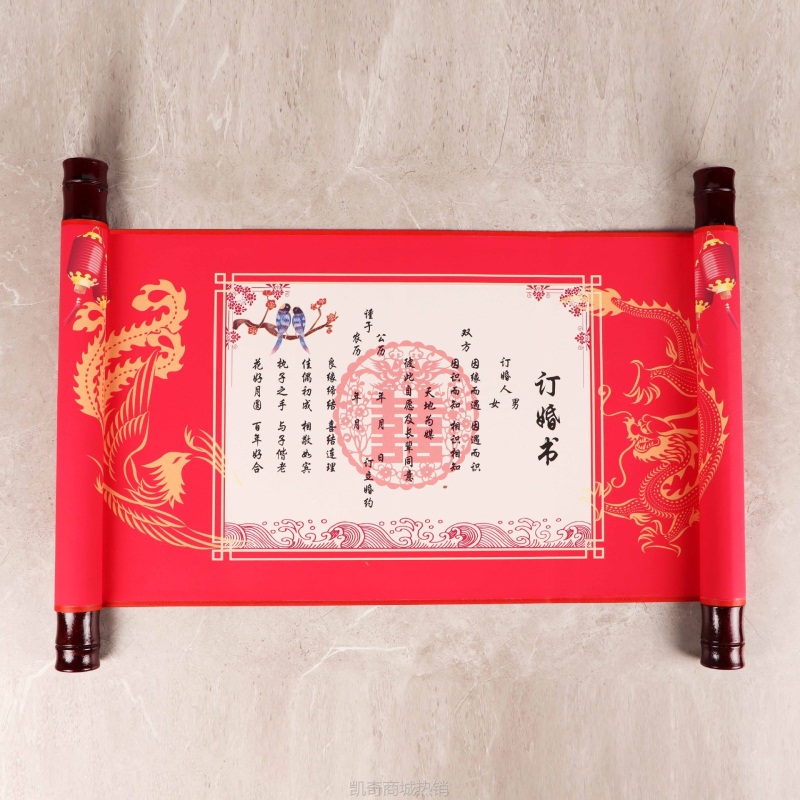 订婚书
订婚人 男
女
双方
因缘而遇 因遇而识
因识而知 相识相知
天地为媒
彼此自愿及长辈同意
谨于 公历 年 月 日 订立婚约
农历 年 月
良缘缔结 喜结连理
佳偶初成 相敬如宾
执子之手 与子偕老
花好月圆 百年好合
囍
凯奇商城热销